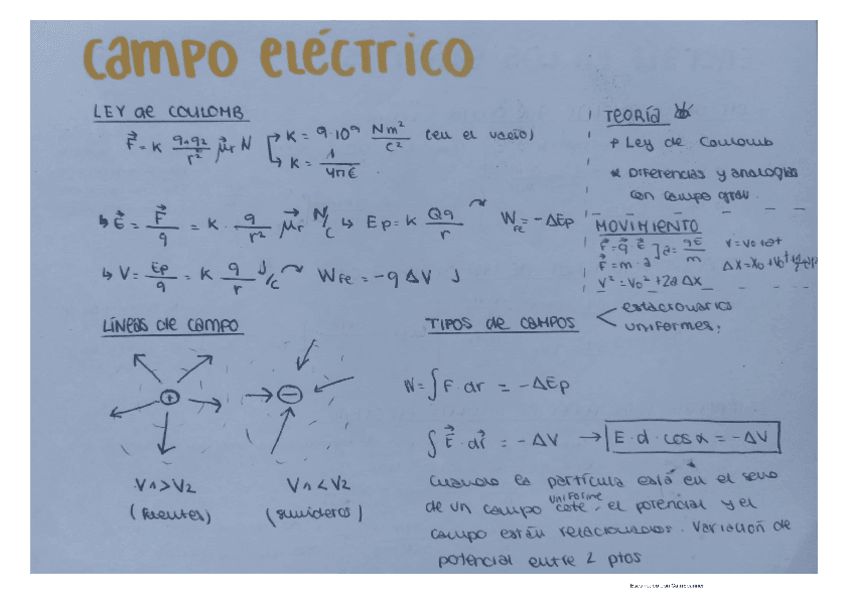 Campo eléctrico
LEY de COULOMB
F⃗ = K q₁q₂/r² μ⃗r N
K = 9·10⁹ Nm²/C² (en el vacío)
K = 1/4πε
↳ E⃗ = F⃗/q = K · q/r² μ⃗r N/C ↳ Ep = K Qq/r → W_Fe = -ΔEp
↳ V = Ep/q = K q/r J/C → W_Fe = -q ΔV J
TEORÍA
+ Ley de Coulomb
* Diferencias y analogías
con campo grav.
MOVIMIENTO
F⃗ = q⃗·E⃗ ] a = qE/m V = V₀ + at
F⃗ = m·a
ΔX = X₀ + V₀t +
V² = V₀² + 2a ΔX
LÍNEAS de CAMPO
+
−
V₁ > V₂
(fuentes)
V₁ < V₂
(sumideros)
TIPOS de CAMPOS
estacionarios
uniformes.
W = ∫F·dr = -ΔEp
∫E⃗·dr⃗ = -ΔV → E·d·cosα = -ΔV
Cuando la partícula está en el seno
de un campo uniforme cote, el potencial y el
campo están relacionados. Variación de
potencial entre 2 ptos